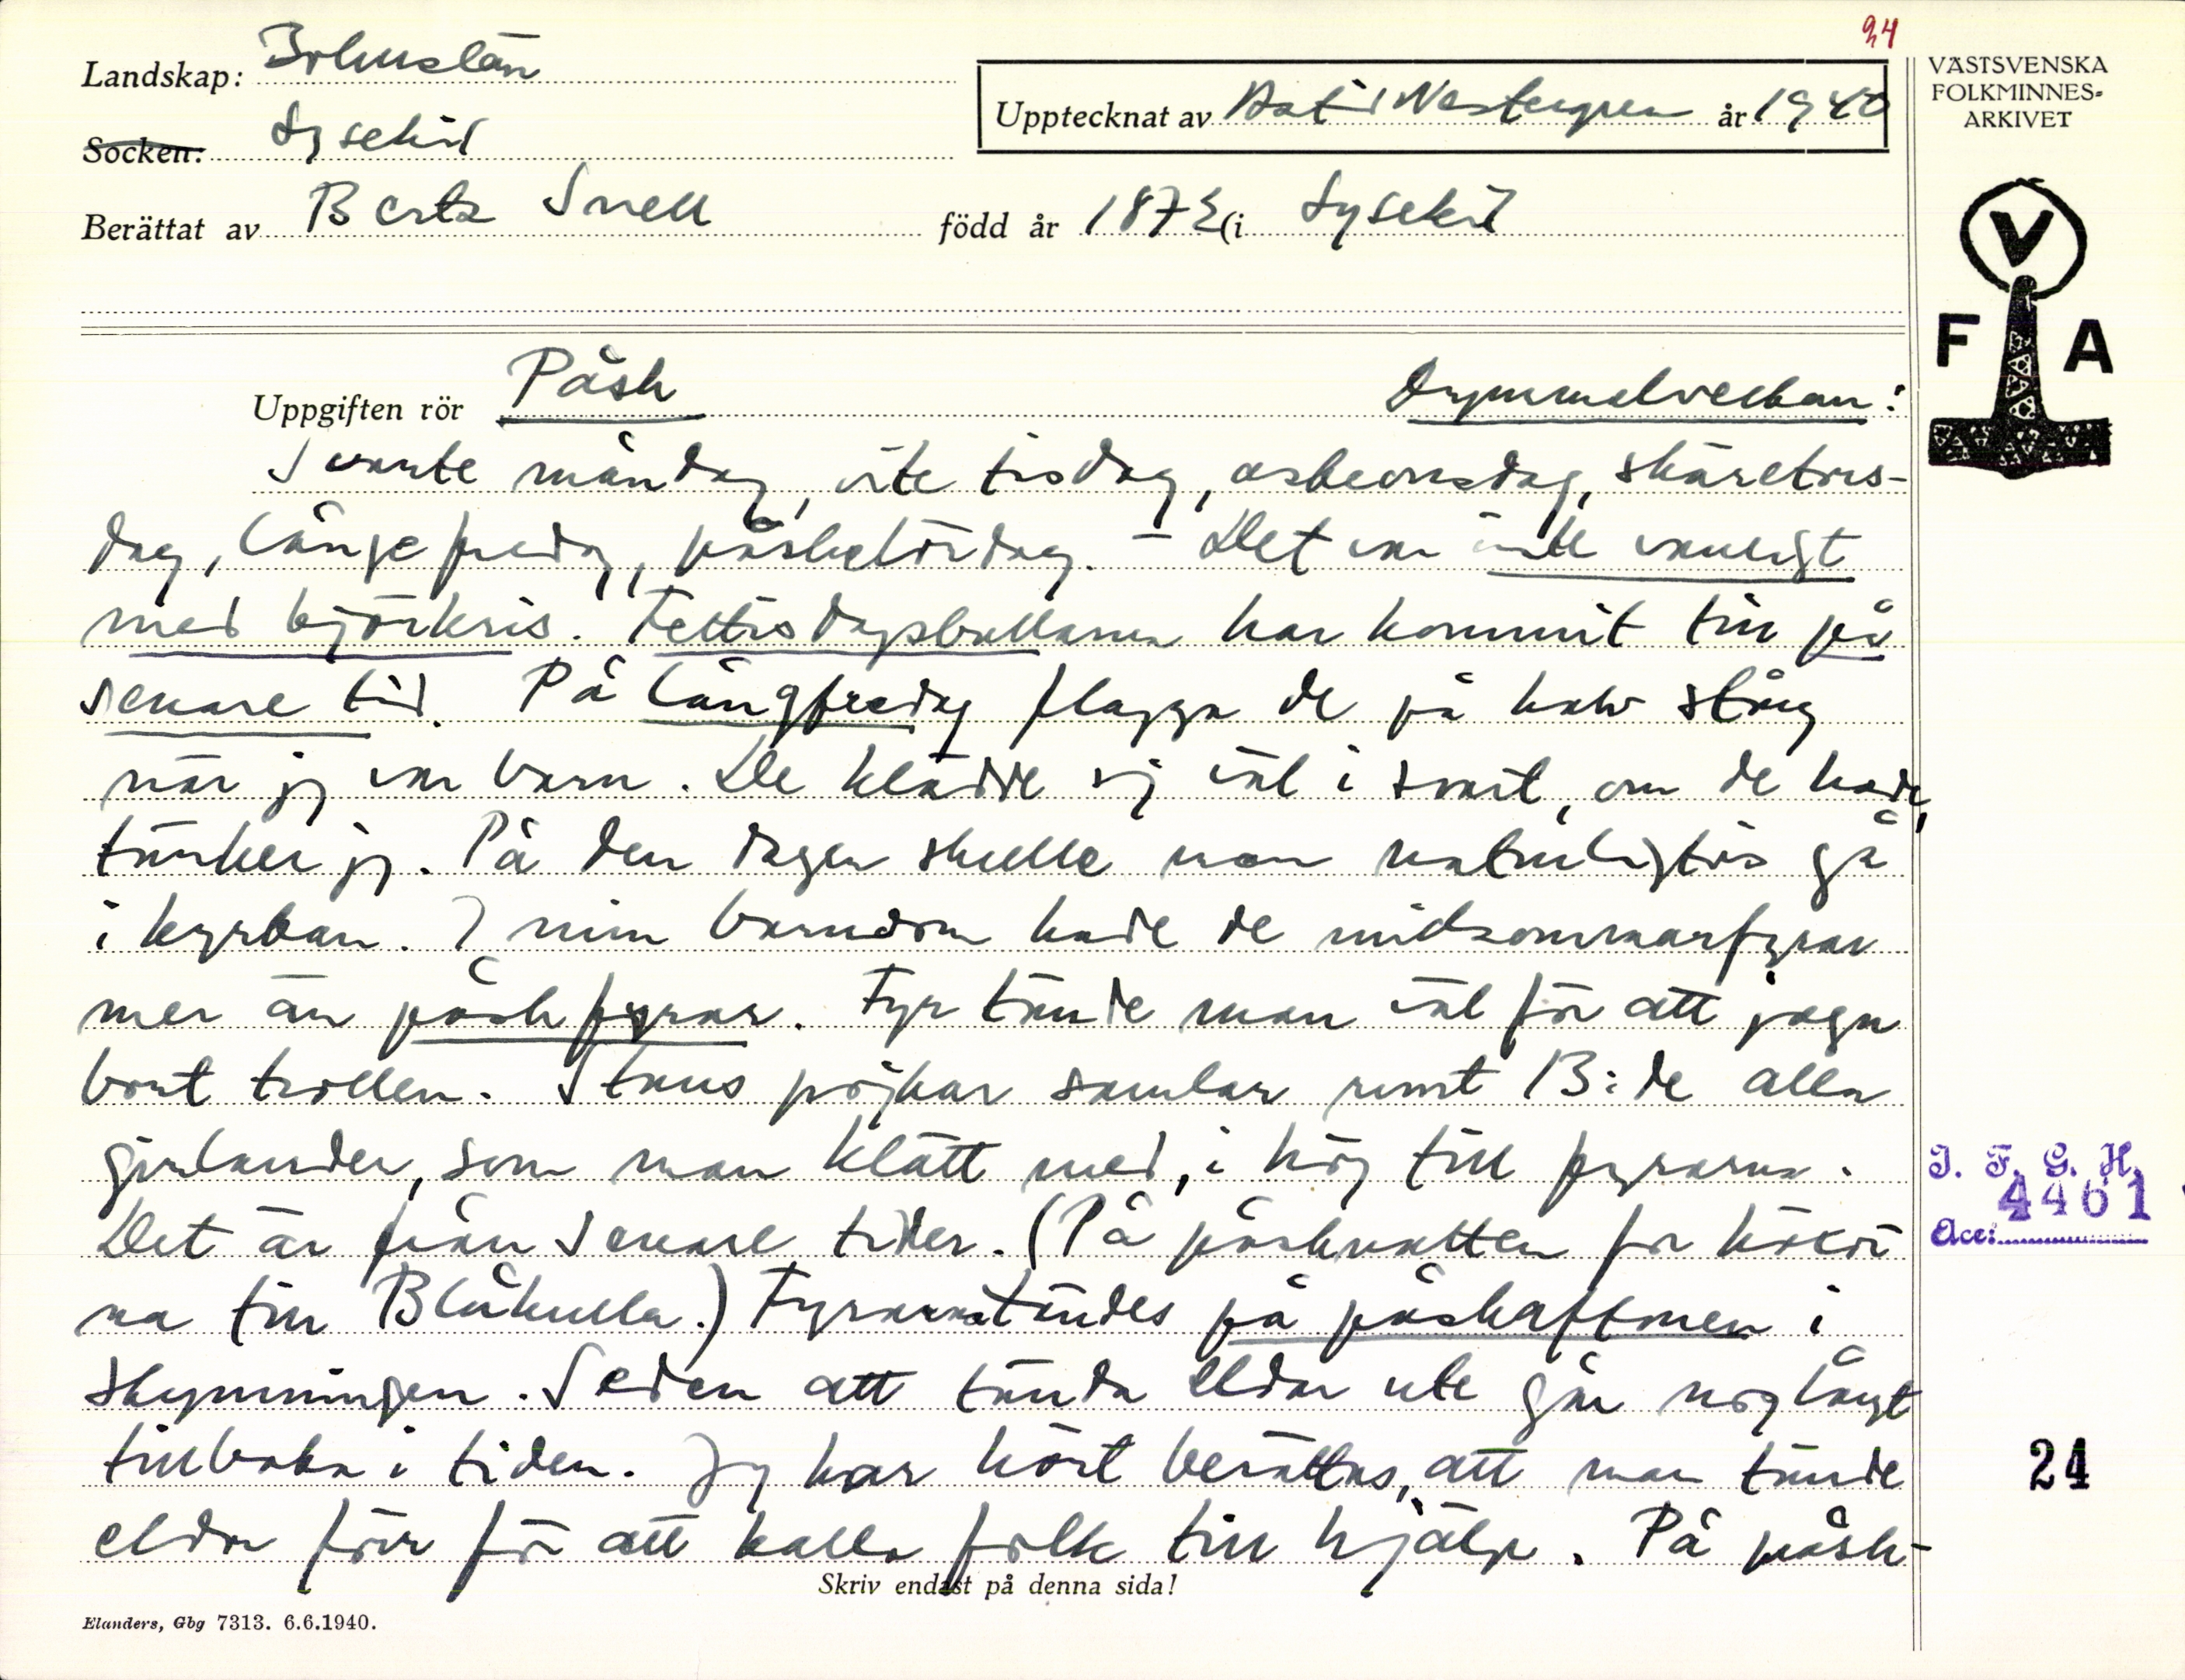 24
Landskap: Bohuslän
Socken: Lysekil
Upptecknat av Westergren år 1940
Berättat av Berta Snell född år 1872 (i Lysekil
VÄSTSVENSKA
FOLKMINNES-
ARKIVET
V
F A
Uppgiften rör Påsk Dymmelveckan:
Svarte måndag, vite tisdag, askeonsdag, skäretors-
dag, långe fredag, påskelördag. - Det var inte vanligt
med björkris. Fettisdagsbullarna har kommit till på
senare tid. På långfredag flagga de på halv stång
när jag var barn. De klädde sig väl i svart, om de hade,
tänker jag. På den dagen skulle man naturligtvis gå
i kyrkan. I min barndom hade de midsommarfyrar
mer än påskfyrar. Fyr tände man väl för att jaga
bort trollen. Stans pojkar samlar runt 13:de alla
girlander, som man klätt med, i hög till fyrarna.
Det är från senare tider. (På påsknatten for häxor
na till Blåkulla.) Fyrarna tändes på påskaftonen i
skymningen. Seden att tända eldar ute går nog långt
tillbaka i tiden. Jag har hört berättas, att man tände
eldar förr för att kalla folk till hjälp. På påsk-
Skriv endast på denna sida!
Elanders, Gbg 7313. 6.6.1940.
I. F. G. H.
4461
Acc:
24